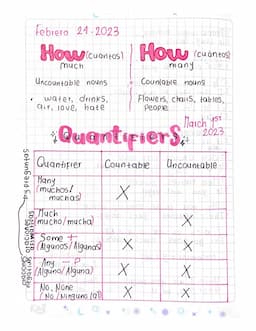 Febrero 24-2023
How (cuantos) much
How (cuántos) many
Uncountable nouns
Countable nouns
• water, drinks, air, love, hate
Flowers, chairs, tables, people
March 1st 2023
Quantifiers
Quantifier Countable Uncountable
Many (muchos/muchas) X
Much (mucho/mucha) X
Some + (Algunos/Algunas) X X
Any - ? (Alguno/Alguna) X X
No, None (No/Ninguno (a)) X X